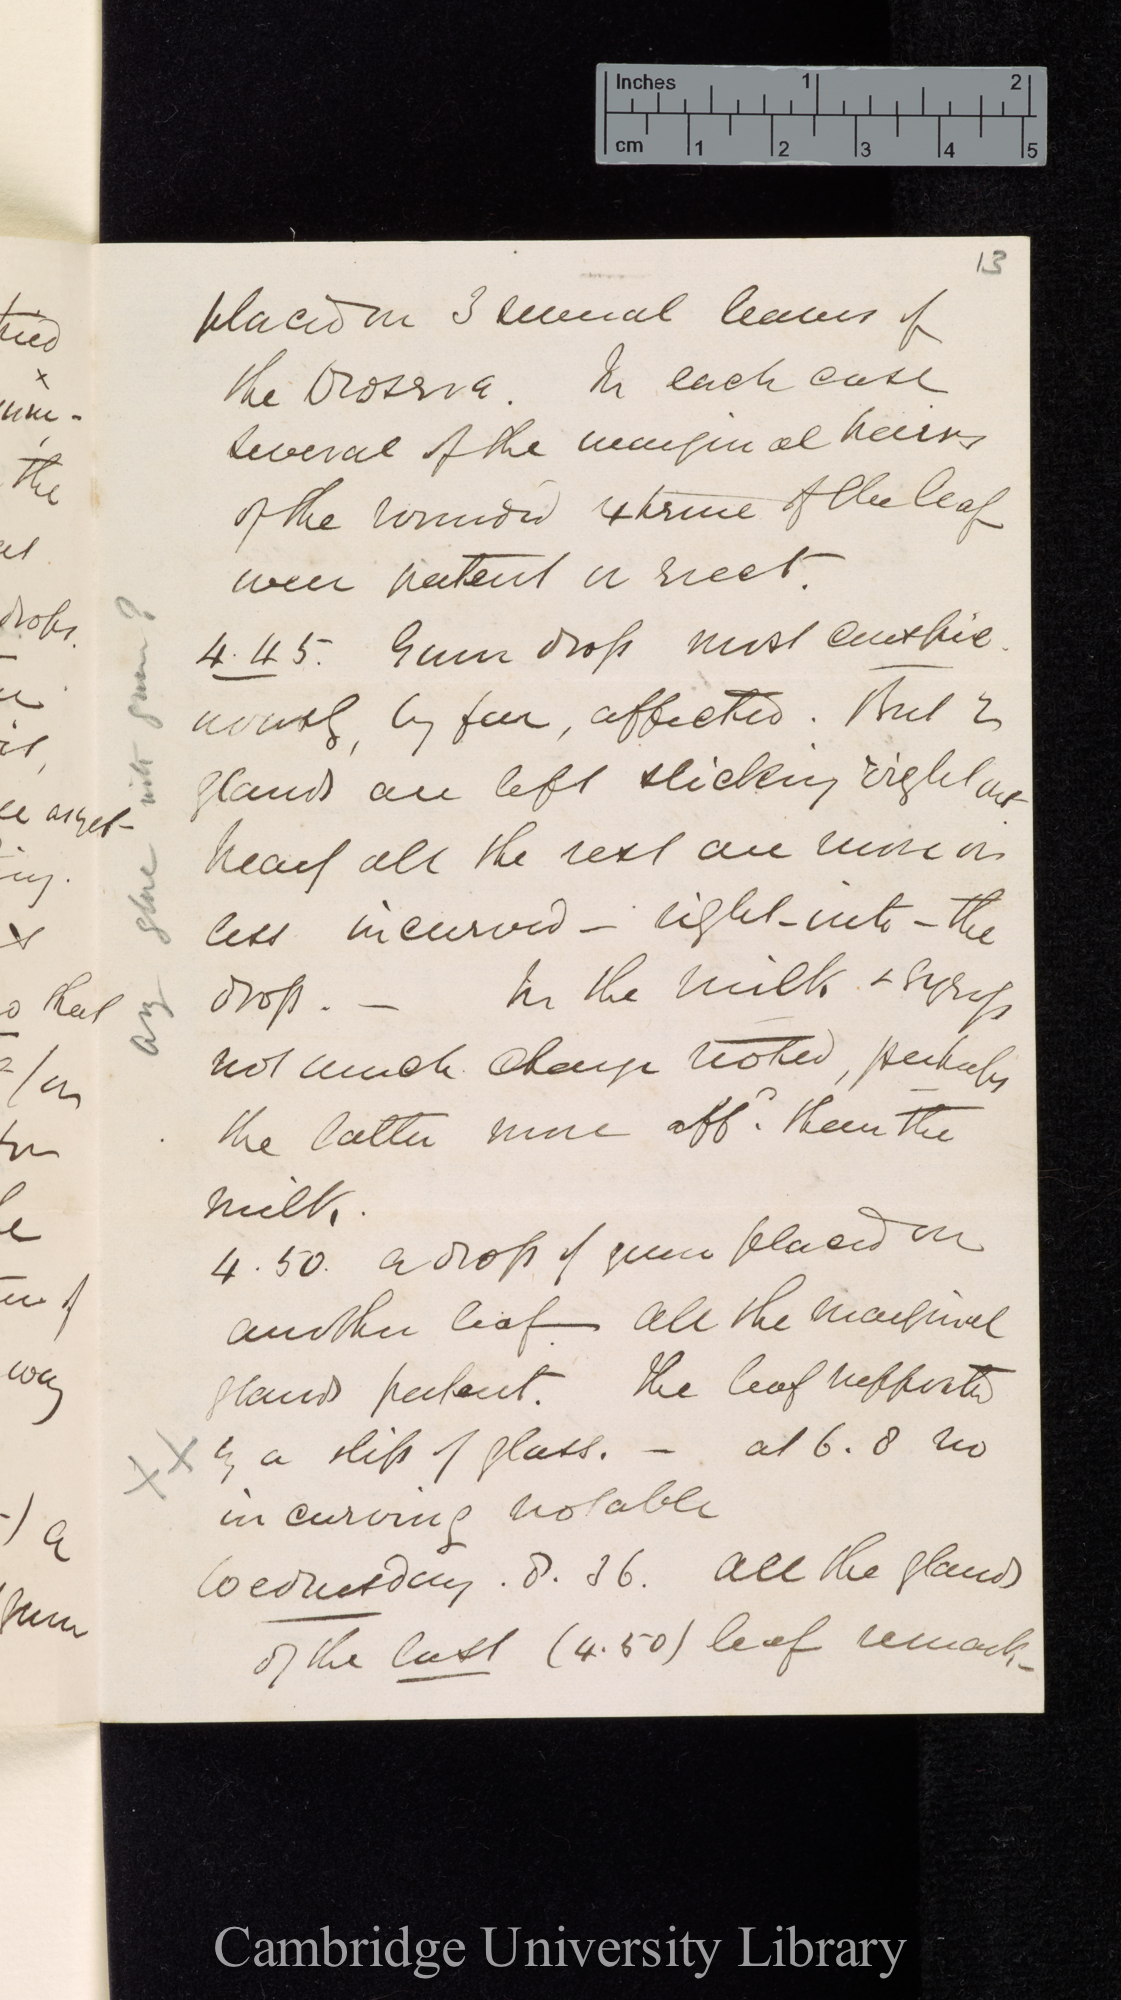 Inches 1 2
cm 1 2 3 4 5
13
placed on 3 several leaves of
the Drosera. In each case
several of the marginal hairs
of the rounded extreme of the leaf
were patent or erect.
4.45. Gum drop most conspic-
uously, by far, affected. But 2
glands are left sticking right out
nearly all the rest are more or
less incurved – right-into-the
drop. – In the milk & syrup
not much change noted, perhaps
the latter more affd. than the
milk.
4.50. a drop of gum placed on
another leaf all the marginal
glands patent. The leaf supported
by a slip of glass. – at 6.8 no
incurving notable
Wednesday. 8.36. all the glands
of the last (4.50) leaf remark-
any glue with gum?
x x
tried
x
the
drops.
as yet-
ing.
x
that
on
of
way
a
gum
Cambridge University Library